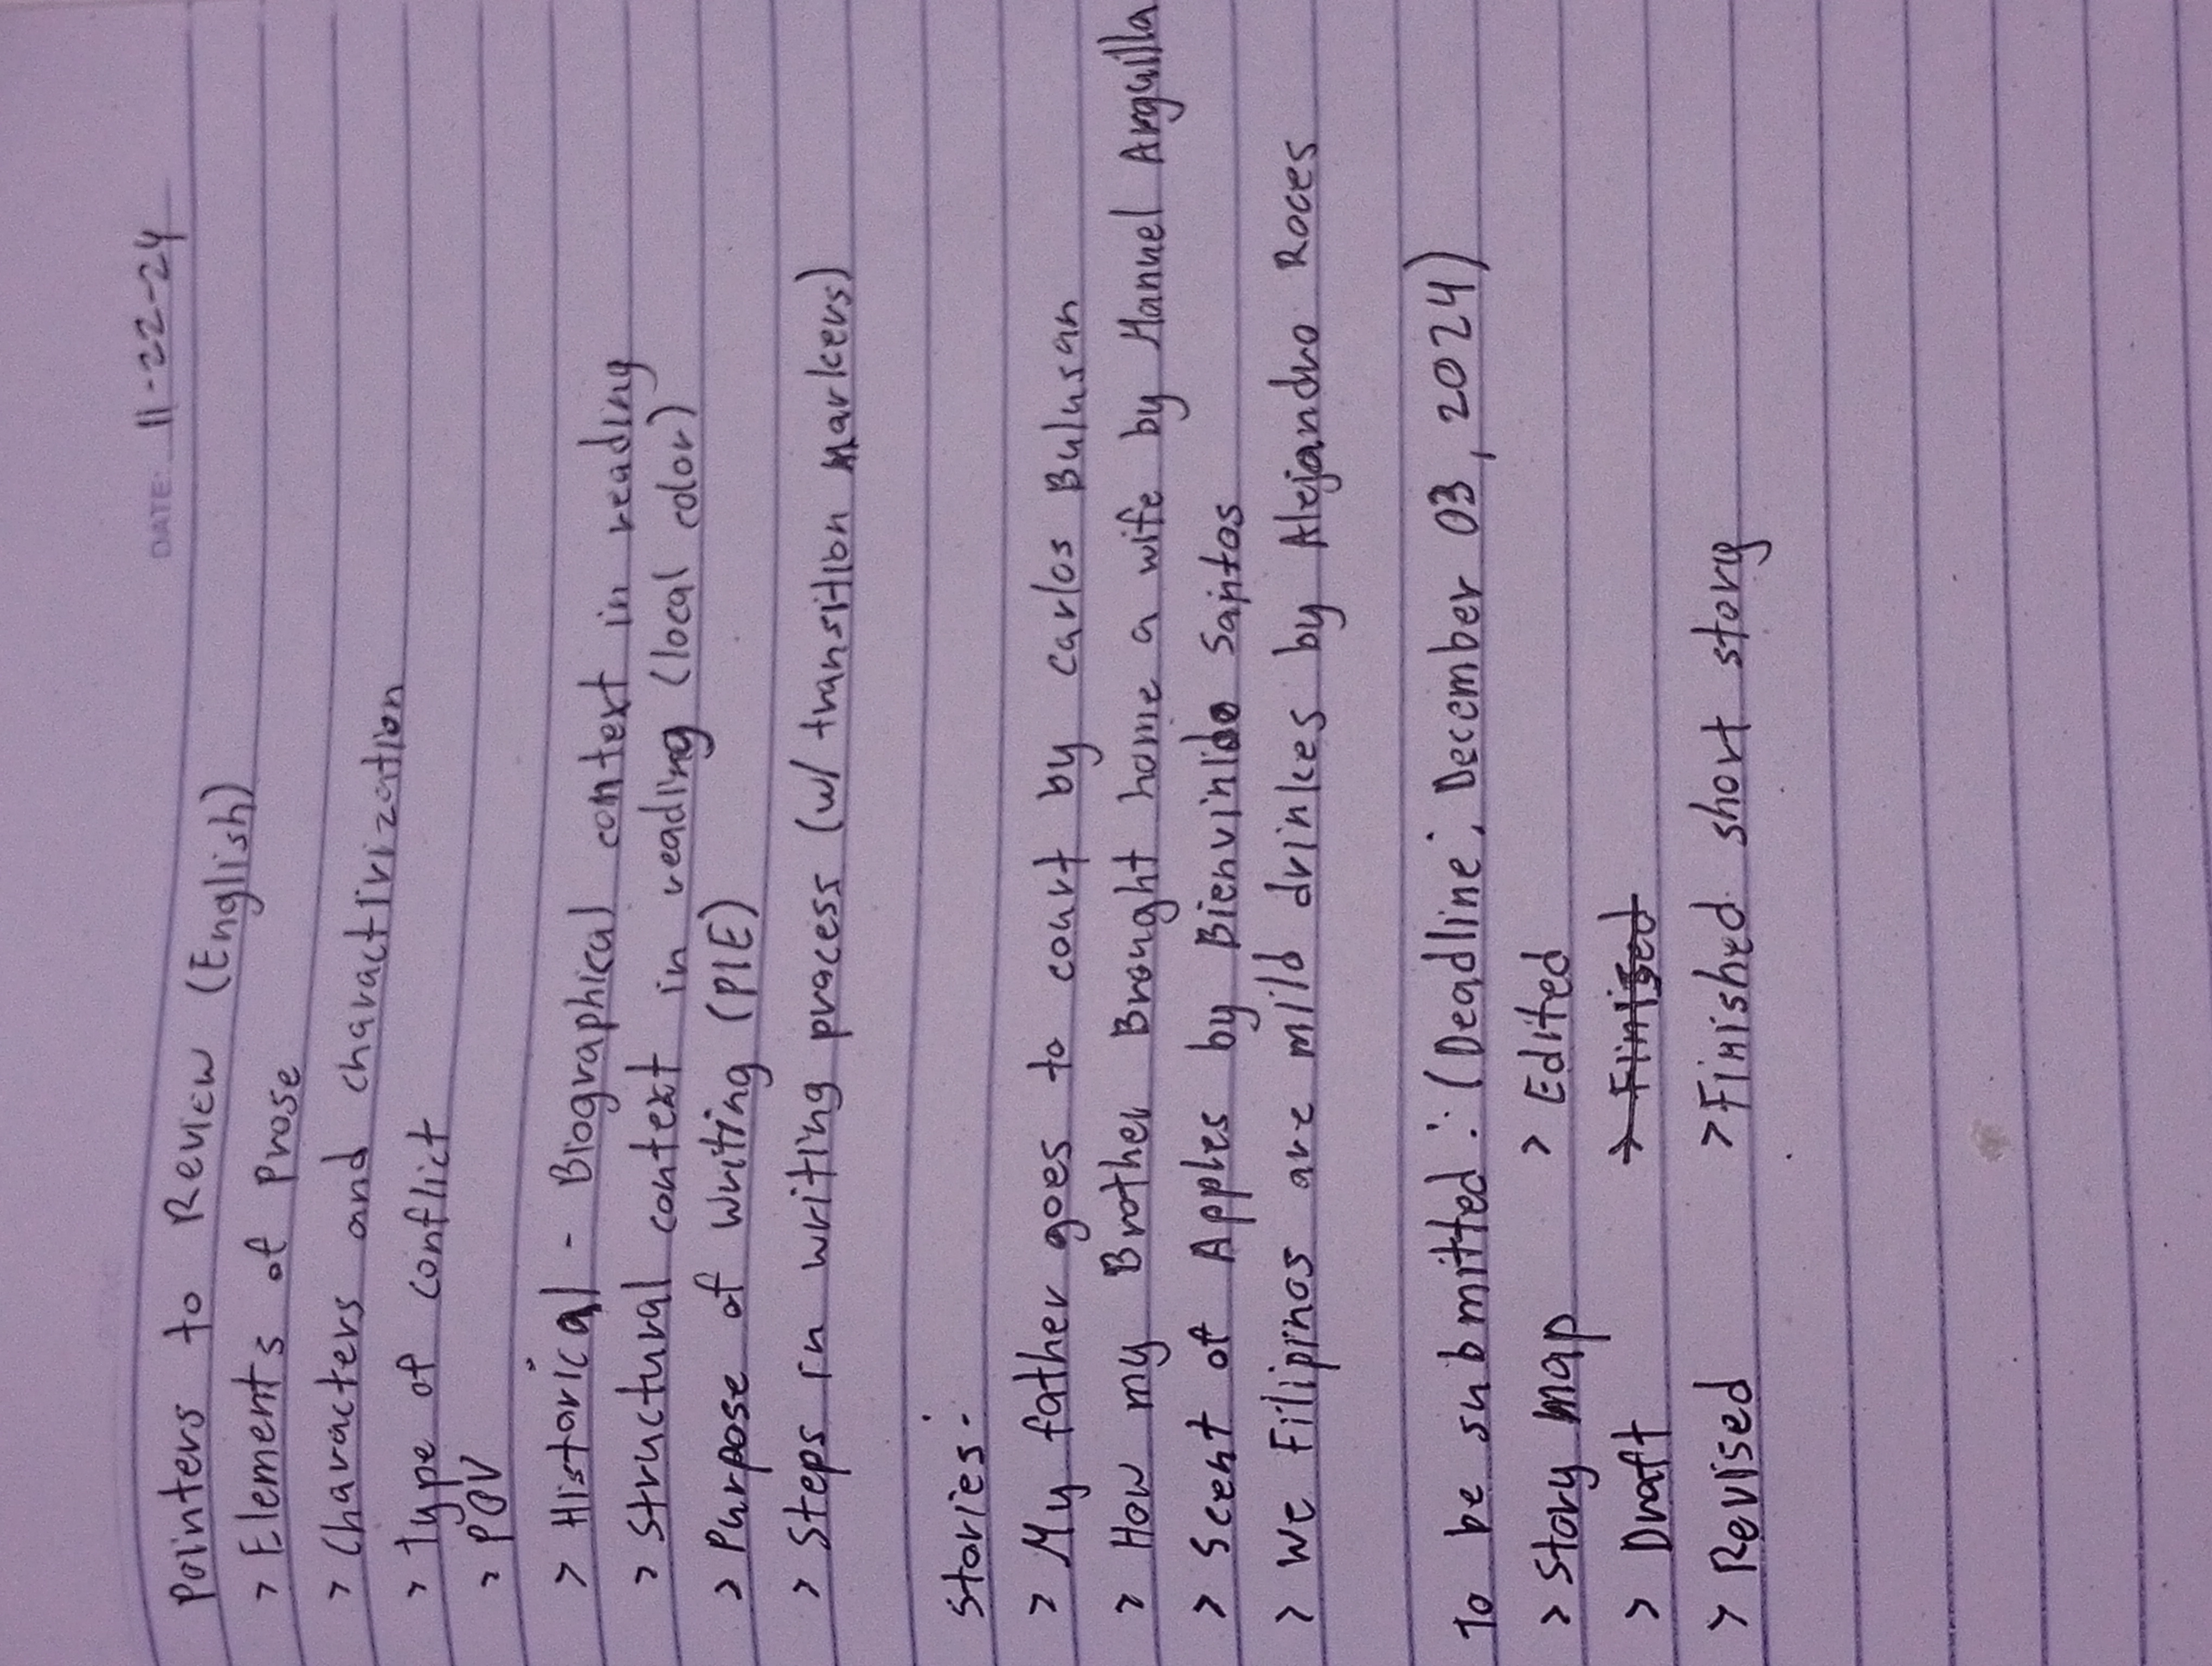 DATE: 11-22-24
Pointers to Review (English)
> Elements of Prose
> Characters and charactirization
> Type of conflict
> POV
> Historical - Biographical context in reading
> Structural context in reading (local color)
> Purpose of writing (PIE)
> Steps in writing process (w/ transition markers)
Stories:
> My father goes to court by Carlos Bulusan
> How my Brother Brought home a wife by Manuel Arguilla
> Scent of Apples by Bienvinido Santos
> We Filipinos are mild drinkes by Alejandro Roces
To be submitted: (Deadline; December 03, 2024)
> Story Map > Edited
> Draft > Finised
> Revised > Finished short story